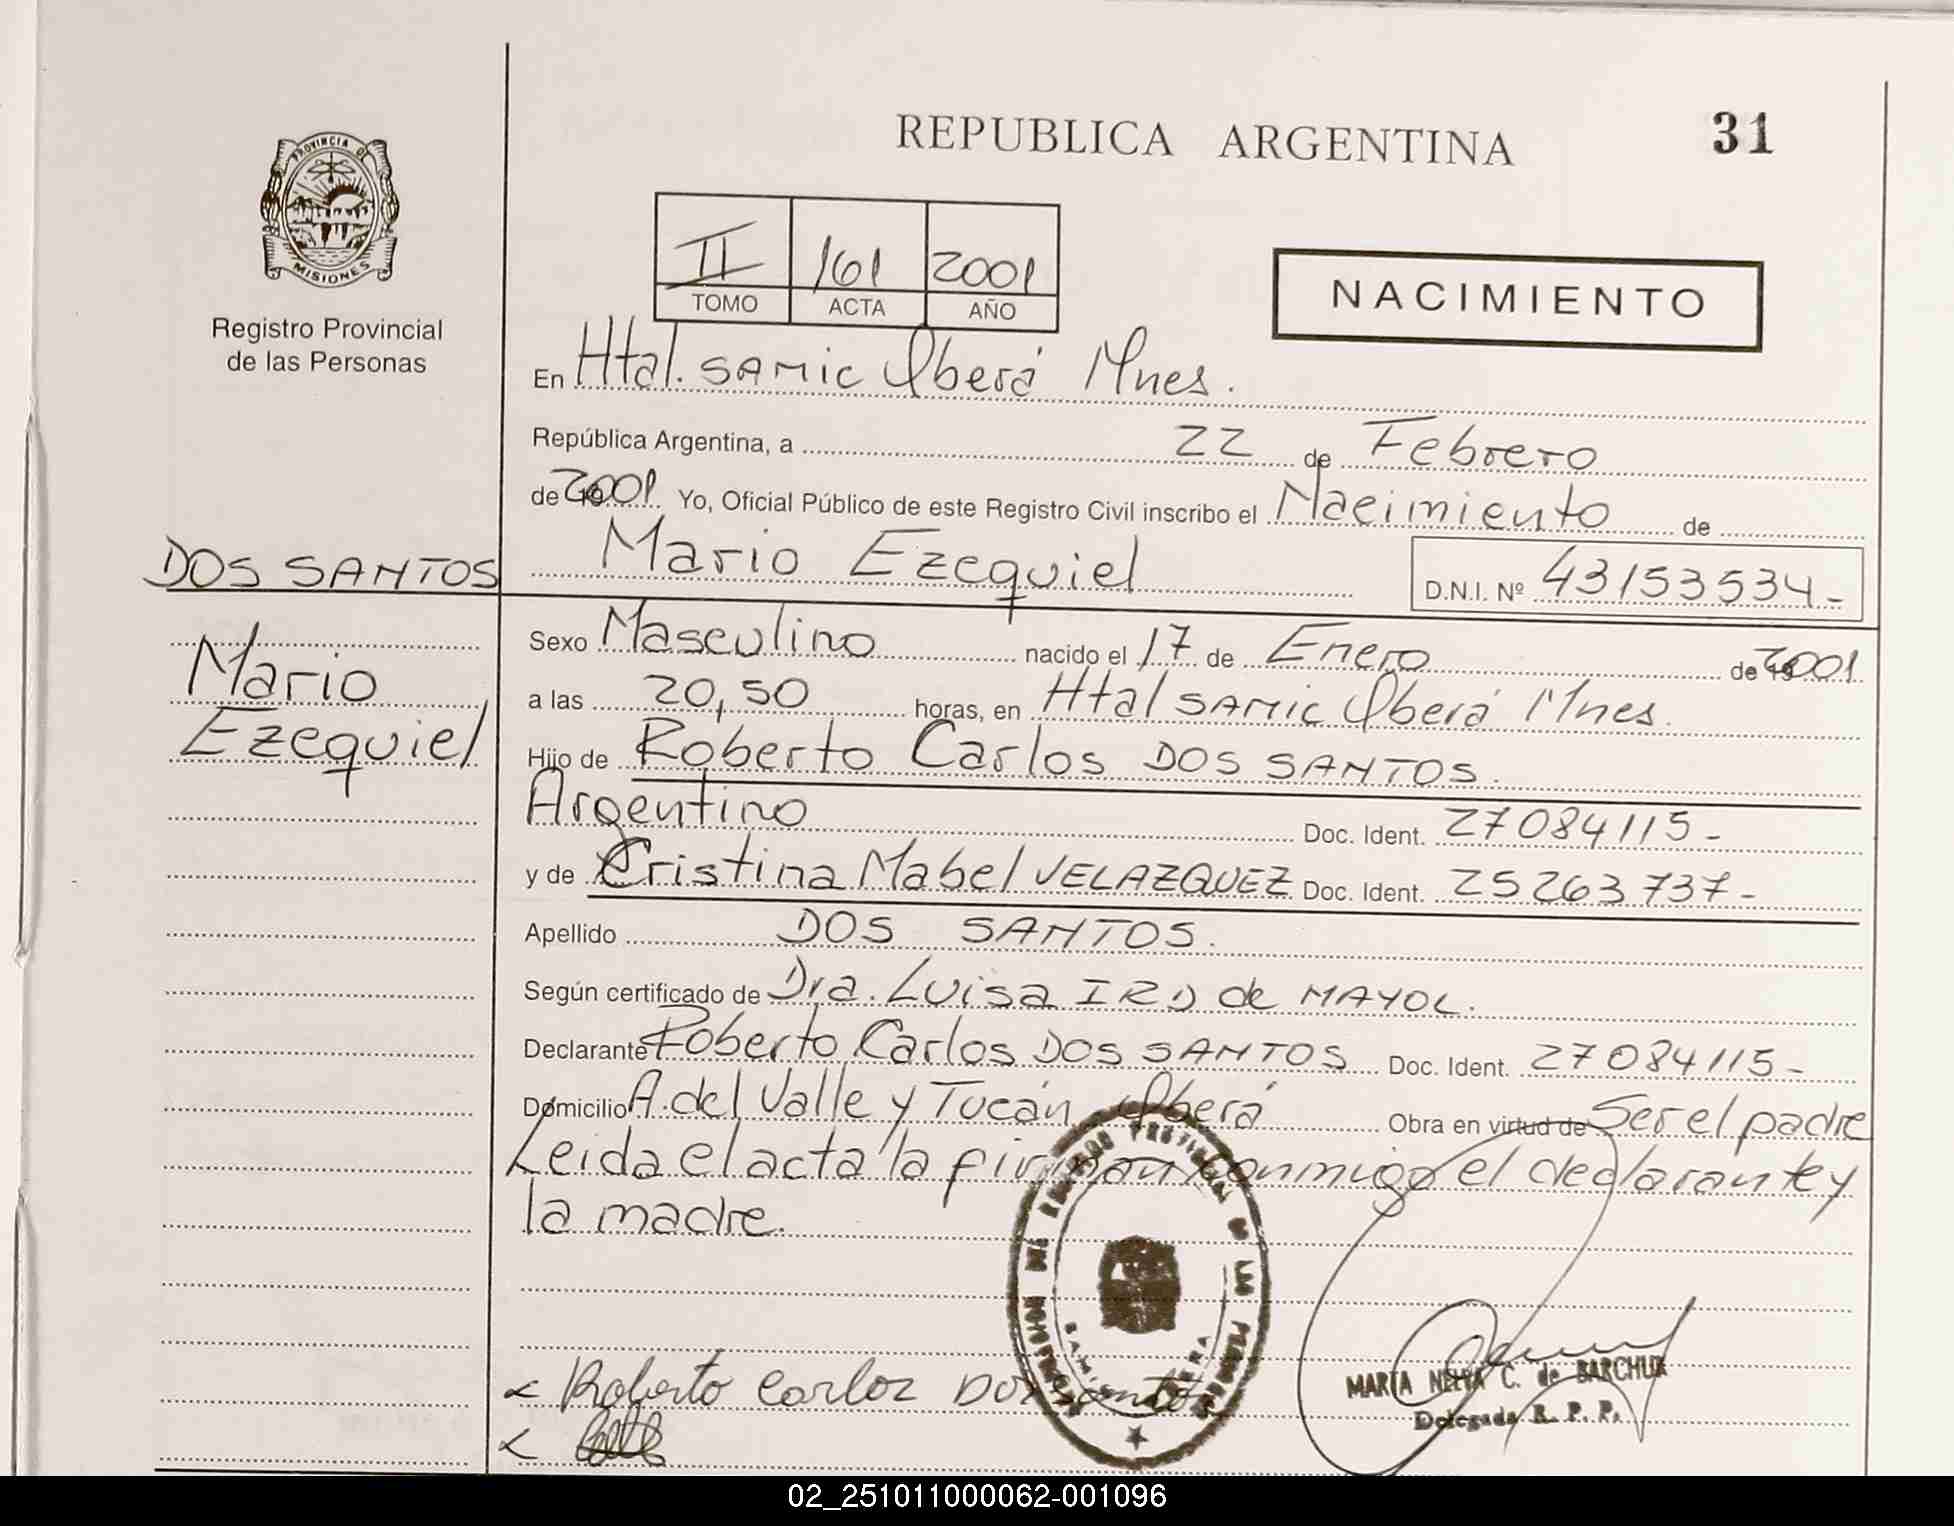 REPUBLICA ARGENTINA
31
PROVINCIA DE
MISIONES
Registro Provincial
de las Personas
II 161 2001
TOMO ACTA AÑO
NACIMIENTO
En Htal. SAMIC Oberá Mnes.
República Argentina, a 22 de Febrero
de 2001. Yo, Oficial Público de este Registro Civil inscribo el Nacimiento de
DOS SANTOS
Mario Ezequiel D.N.I. Nº 43153534-
Mario
Ezequiel
Sexo Masculino nacido el 17 de Enero de 2001
a las 20,50 horas, en Htal SAMIC Oberá Mnes.
Hijo de Roberto Carlos DOS SANTOS.
Argentino Doc. Ident. 27084115-
y de Cristina Mabel VELAZQUEZ Doc. Ident. 25263737-
Apellido DOS SANTOS.
Según certificado de Dra. Luisa de MAYOL.
Declarante Roberto Carlos DOS SANTOS Doc. Ident. 27084115-
Domicilio A. del Valle y Tucán Oberá Obra en virtud de Ser el padre
Leida el acta la firman conmigo el declarante y
la madre.
Roberto Carloz Dos Santos
MARIA C. de BARCHUK
Delegada R. P. P.
02_251011000062-001096